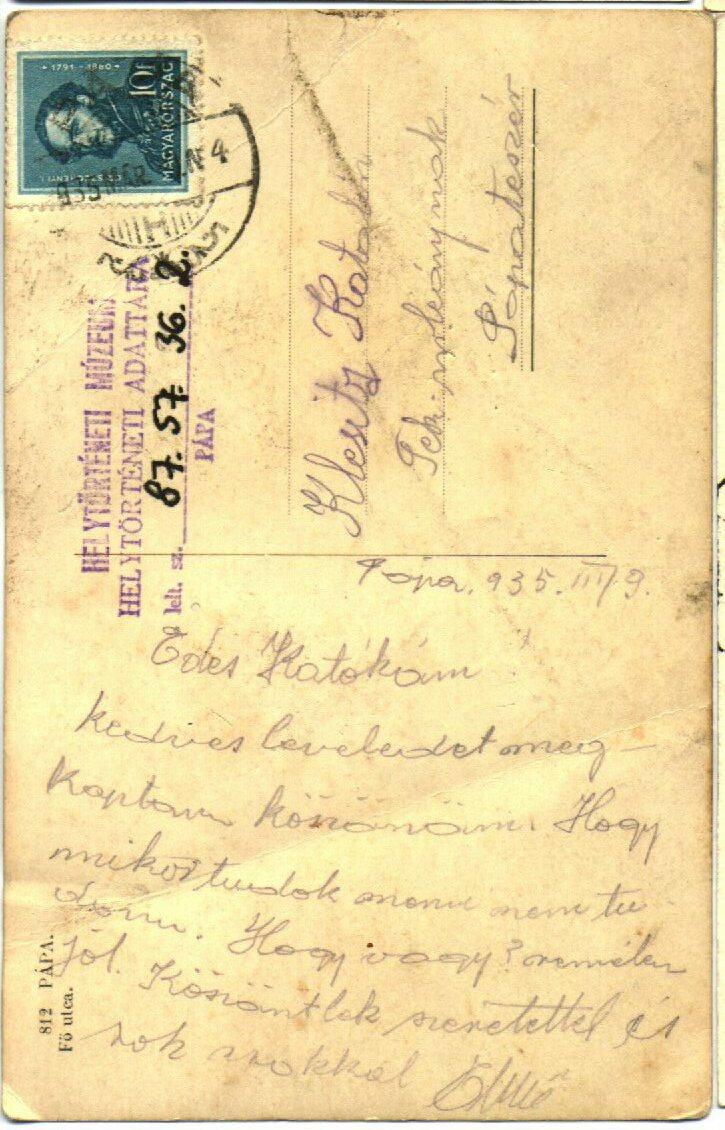 1791-1860
10f
MAGYARORSZÁG
HELYTÖRTÉNETI MÚZEUM
HELYTÖRTÉNETI ADATTÁRA
lelt. sz. 87. 57. 36. 2.
PÁPA
Klesitz Katalin
Tek. urleánynak
Pápateszér
Pápa. 935. III/9.
Édes Katókám!
kedves leveledet meg-
kaptam köszönöm. Hogy
mikor tudok menni nem tu
dom. Hogy vagy? remélem
jól. Köszöntlek szeretettel és
sok
812 PÁPA.
Fő utca.